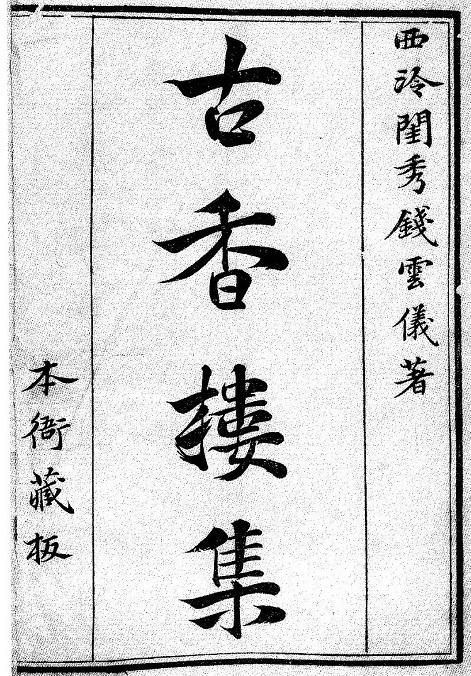 西泠閨秀錢雲儀著
古香樓集
本衙藏板